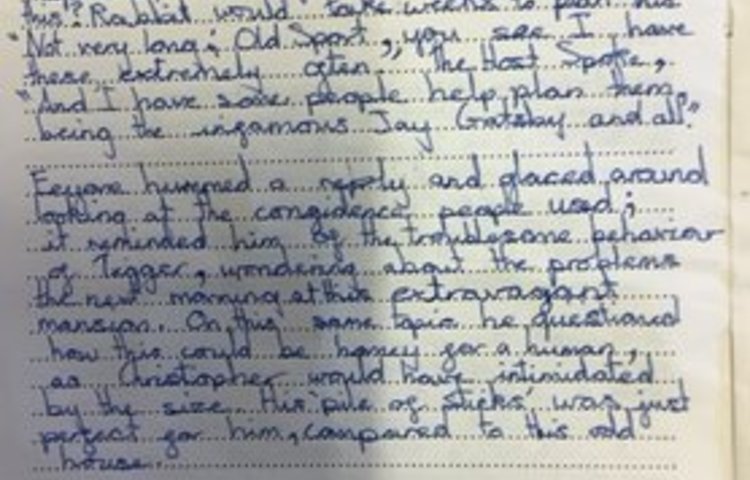 this? Rabbit would take weeks to plan his
"Not very long; Old Sport,, you see I have
these extremely often. The Host Spoke,
"And I have some people help plan them,
being the infamous Jay Gatsby and all."
Eeyore hummed a reply and glaced around
looking at the confidence people used;
it reminded him of the troublesome behaviour
of Tigger, wondering about the problems
the new morning at this extravagant
mansion. On this same topic he questioned
how this could be homey for a human,
as Christopher would have intimidated
by the size. His 'pile of sticks' was just
perfect for him, compared to this odd
house.